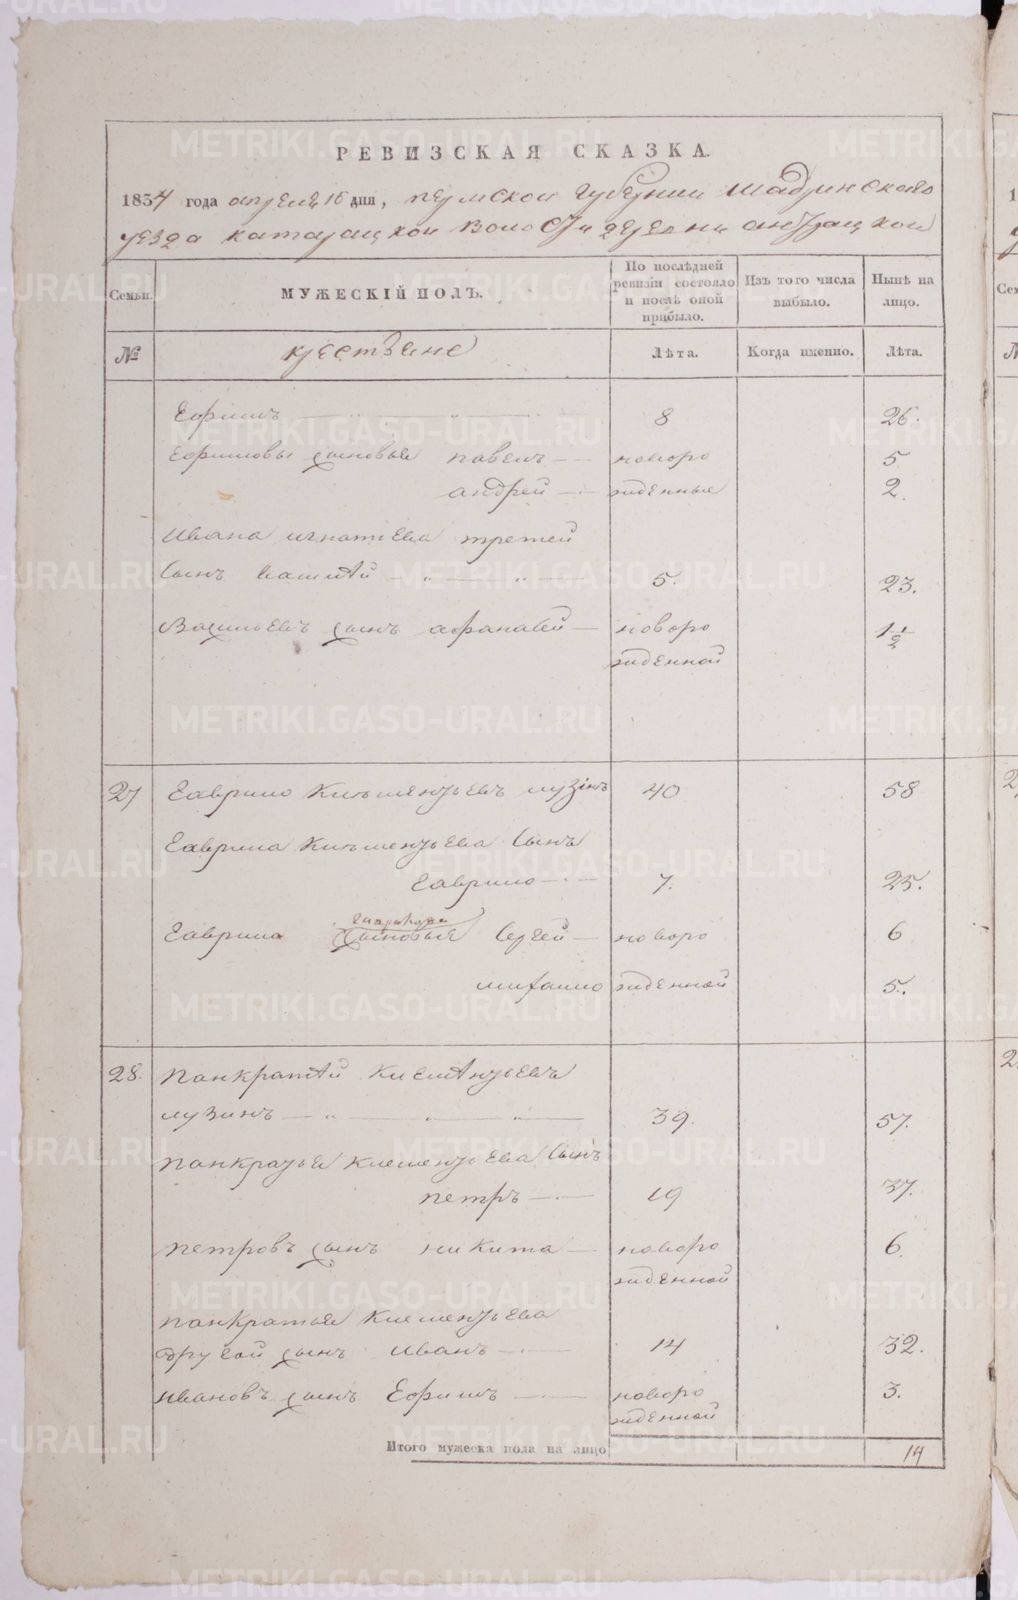 РЕВИЗСКАЯ СКАЗКА.
1834 года апреля 16 дня, пермской губернии шадринского
уезда катайской волости деревни
Семьи. МУЖЕСКІЙ ПОЛЪ. По послѣдней ревизіи состояло и послѣ оной прибыло. Изъ того числа выбыло. Нынѣ на лицо.
№ крестьяне Лѣта. Когда именно. Лѣта.
Ефимъ 8 26.
Ефимовы сыновья павелъ новоро 5
андрей жденные 2.
Ивана игнатьева третей
сынъ 5. 23.
Васильевъ сынъ афанасей новоро 1 1/2
жденной
27 Гаврило Клементьевъ лузинъ 40 58
Гаврила Клементьева сынъ
Гаврило 7. 25.
Гаврила сыновья Сергей новоро 6
михайло жденной 5.
28. Панкратей Клементьевъ
лузинъ 39. 57.
панкратья клементьева сынъ
петръ 19 37.
петровъ сынъ никита новоро 6.
жденной
панкратья клементьева
другой сынъ иванъ 14 32.
ивановъ сынъ Ефимъ новоро 3.
жденной
Итого мужеска пола на лицо 14
METRIKI.GASO-URAL.RU